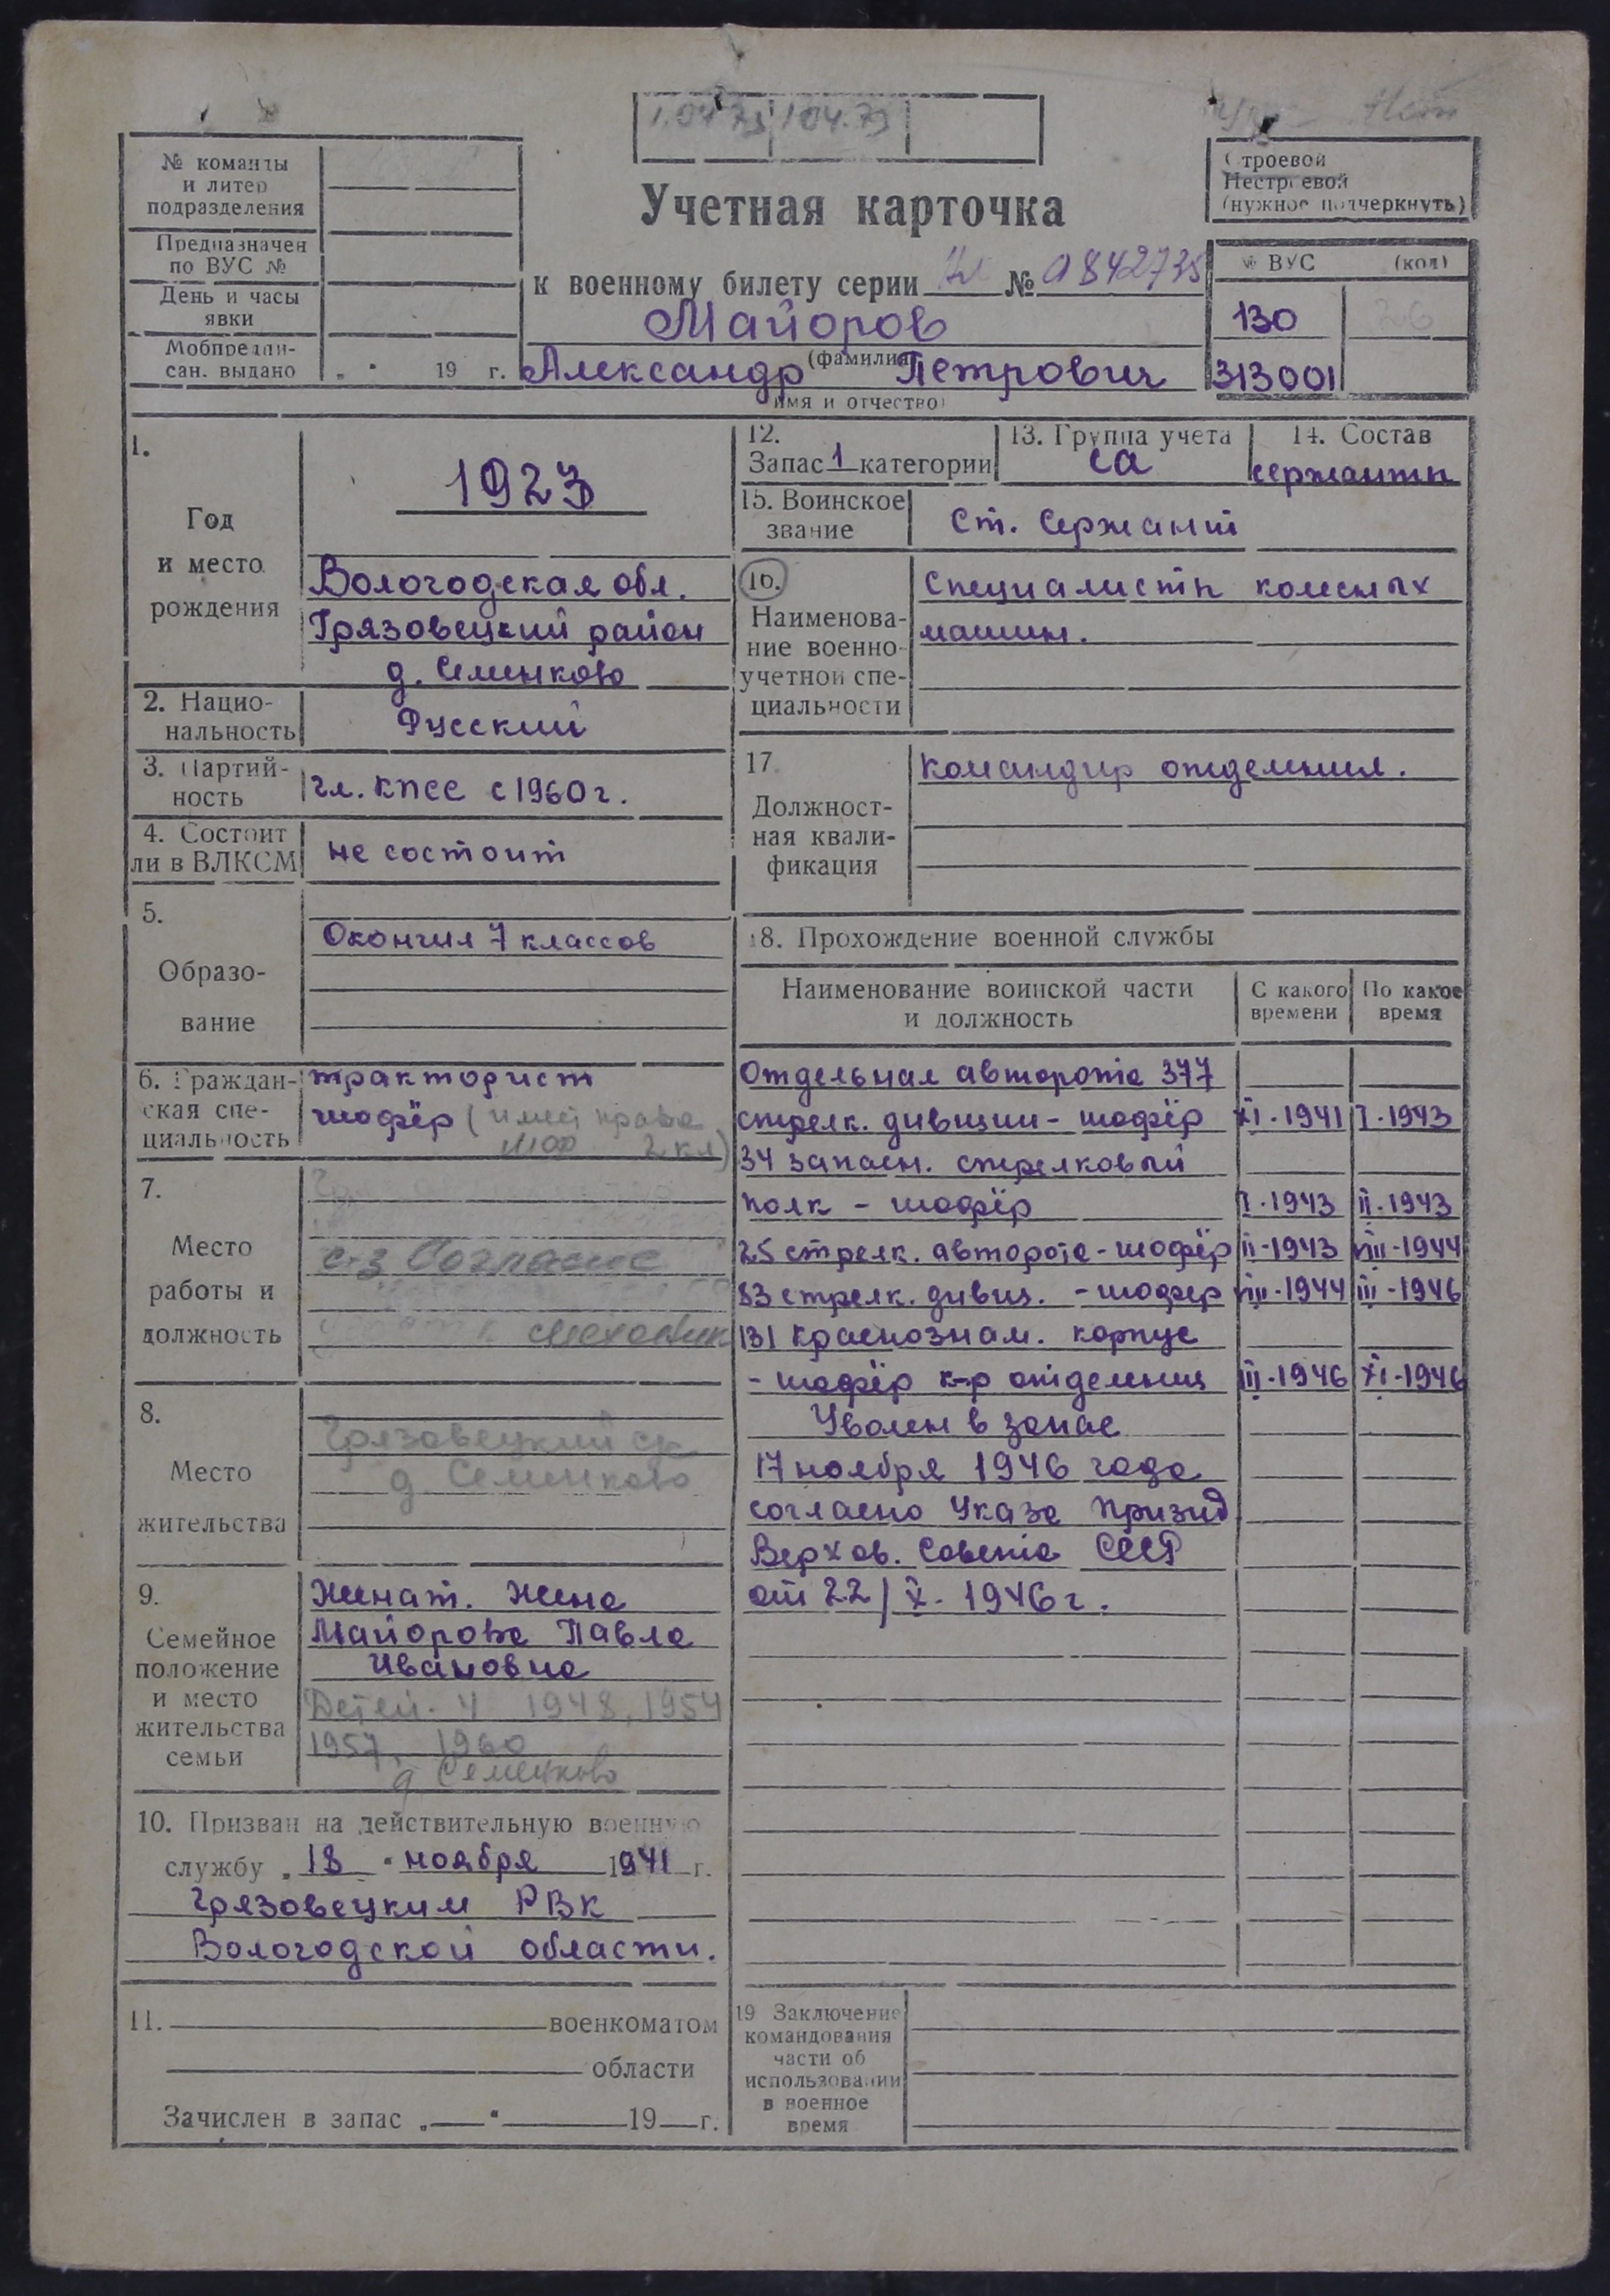 1.04 73 104.73
№ команды
и литер
подразделения
Предназначен
по ВУС №
День и часы
явки
Мобпредпи-
сан. выдано „ " 19 г.
Учетная карточка
к военному билету серии № 0842735
Майоров
(фамилия)
Александр Петрович
имя и отчество)
Строевой
Нестроевой
(нужное подчеркнуть)
№ ВУС (код)
130 26
313001
1.
Год
и место
рождения
1923
Вологодская обл.
Грязовецкий район
д. Семенково
2. Нацио-
нальность
Русский
3. Партий-
ность
чл. КПСС с 1960 г.
4. Состоит
ли в ВЛКСМ
не состоит
5.
Образо-
вание
Окончил 7 классов
6. Граждан-
ская спе-
циальность
тракторист
шофёр (имеет права
2 кл)
7.
Место
работы и
должность
с-з Согласие
8.
Место
жительства
Грязовецкий
д. Семенково
9.
Семейное
положение
и место
жительства
семьи
Женат. Жена
Майорова Павла
Ивановна
Детей - 4 1948, 1954
1957, 1960
д Семенково
10. Призван на действительную военную
службу „ 18 " ноября 1941 г.
Грязовецким РВК
Вологодской области.
11. военкоматом
области
Зачислен в запас „ " 19 г.
12.
Запас 1 категории
13. Группа учета
СА
14. Состав
сержанты
15. Воинское
звание
Ст. Сержант
16.
Наименова-
ние военно-
учетной спе-
циальности
Специалисты колесных
машин.
17.
Должност-
ная квали-
фикация
Командир отделения.
18. Прохождение военной службы
Наименование воинской части
и должность
С какого
времени
По какое
время
Отдельная авторота 377
стрелк. дивизии - шофёр XI-1941 I-1943
34 запасн. стрелковый
полк - шофёр I-1943 II-1943
25 стрелк. авторота - шофёр II-1943 VIII-1944
83 стрелк. дивиз. - шофер VIII-1944 III-1946
131 Краснознам. корпус
- шофёр к-р отделениц III-1946 XI-1946
Уволен в запас
17 ноября 1946 года
согласно Указа Призид
Верхов. Совета СССР
от 22/X. 1946 г.
19 Заключение
командования
части об
использовании
в военное
время